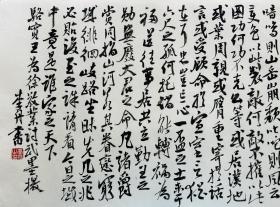 喑呜则山岳崩颓叱咤则风
云变色以此制敌何敌不摧以此
图功何功不克公等或居汉地
或叶周亲或膺重寄于话
言或受顾命于宣室言犹
在耳忠岂忘心一抔之土未干
六尺之孤何托倘能转祸为
福送往事居共立勤王之
勋无废大君之命凡诸爵
赏同指山河若其眷恋穷城
徘徊歧路坐昧先几之兆
必贻后至之诛请看今日之域
中竟是谁家之天下
骆宾王为徐敬业讨武曌檄